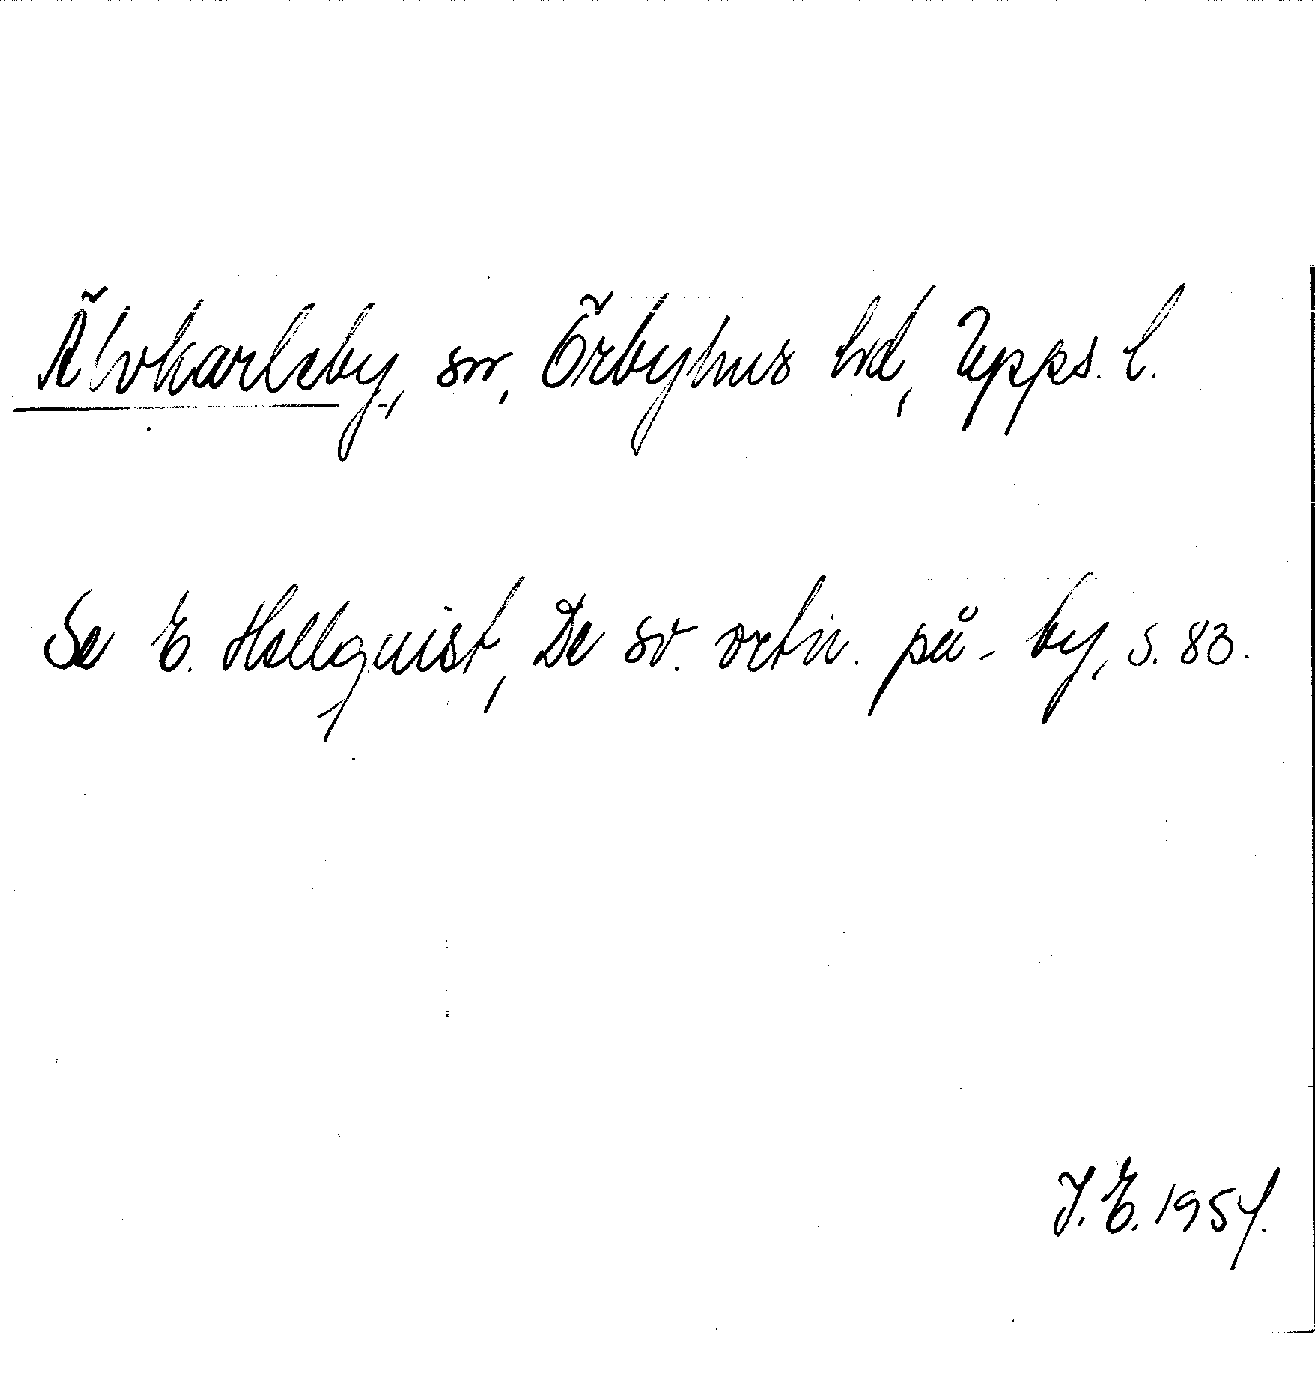 Älvkarleby, sn, Örbyhus hd, Upps. l.
Se E. Hellquist, De sv. ortn. på -by, s. 83.
J. E. 1954.